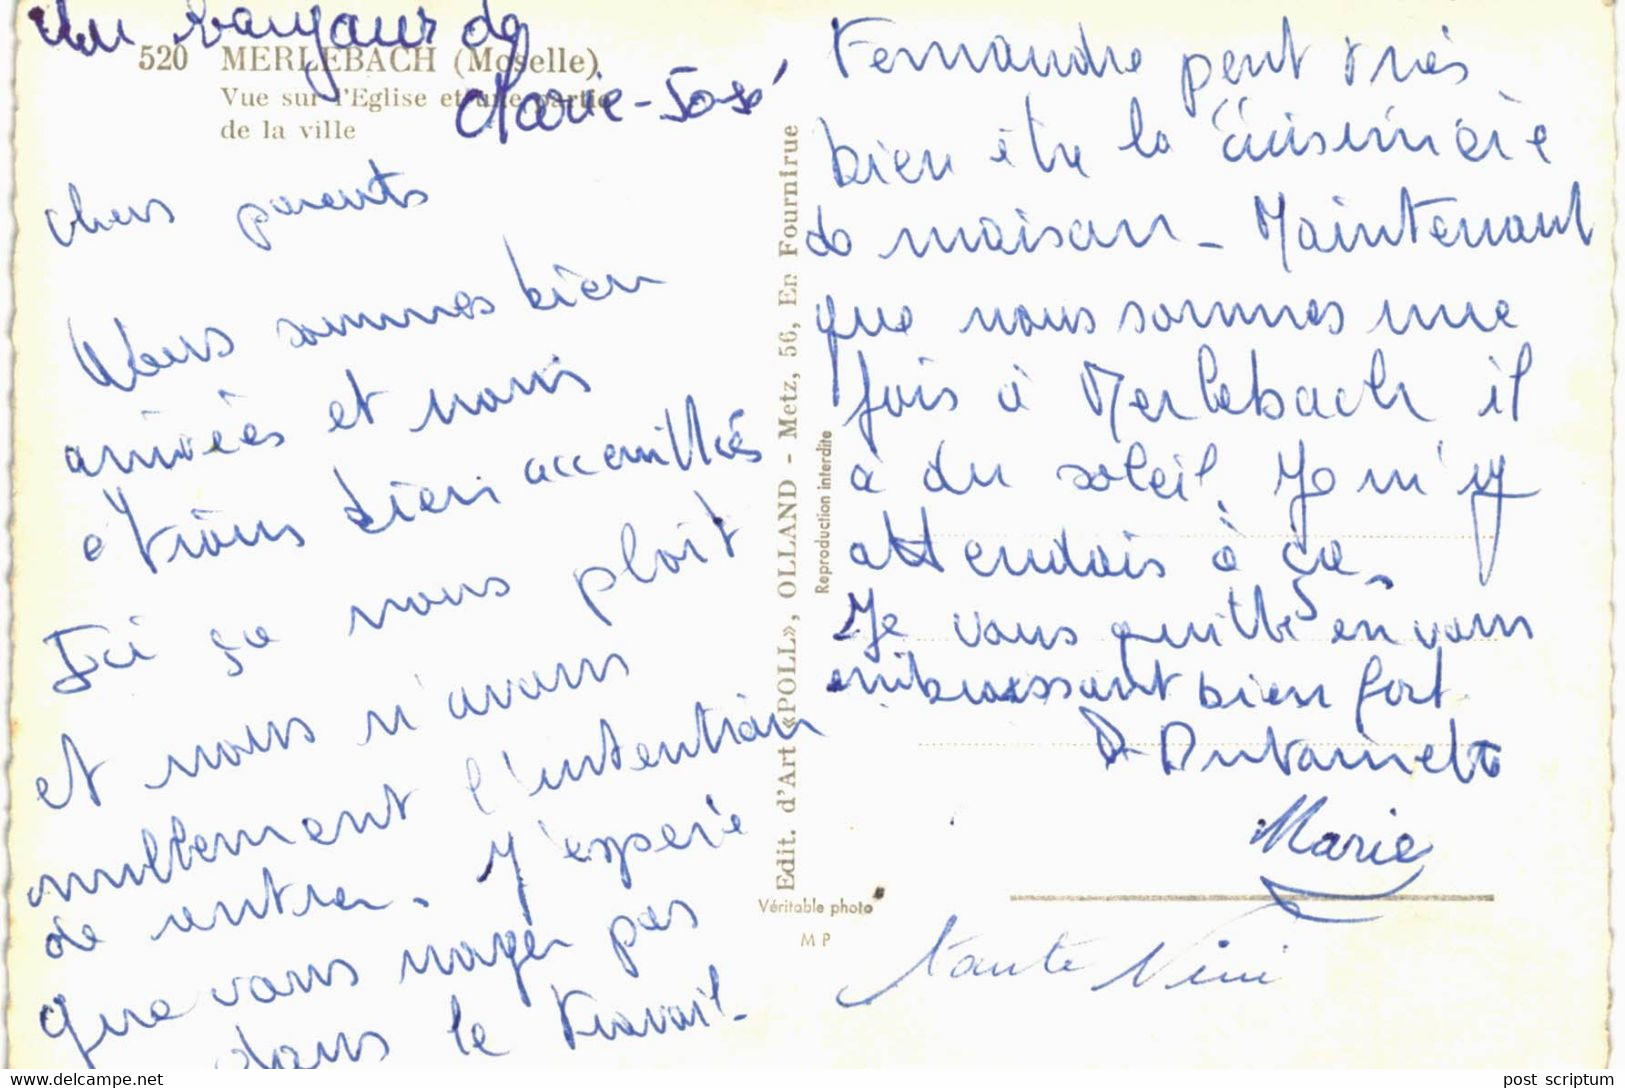 Un bonjour de
Marie-José
520 MERLEBACH (Moselle)
Vue sur l'Eglise et une partie
de la ville
chers parents
Nous sommes bien
arrivées et nous
étions bien accueillies
Ici ça nous plait
et nous n'avons
nullement l'intention
de rentrer. J'espère
que vous nager pas
dans le travail.
Edit. d'Art «POLL», OLLAND - Metz, 56, En Fournirue
Reproduction interdite
Véritable photo
M P
Fernande peut très
bien être la cuisinière
de maison - Maintenant
que nous sommes une
fois à Merlebach il
à du soleil. Je m'y
attendais à ça.
Je vous quitte en vous
embrassant bien fort.
Marie
tante Nini
post scriptum